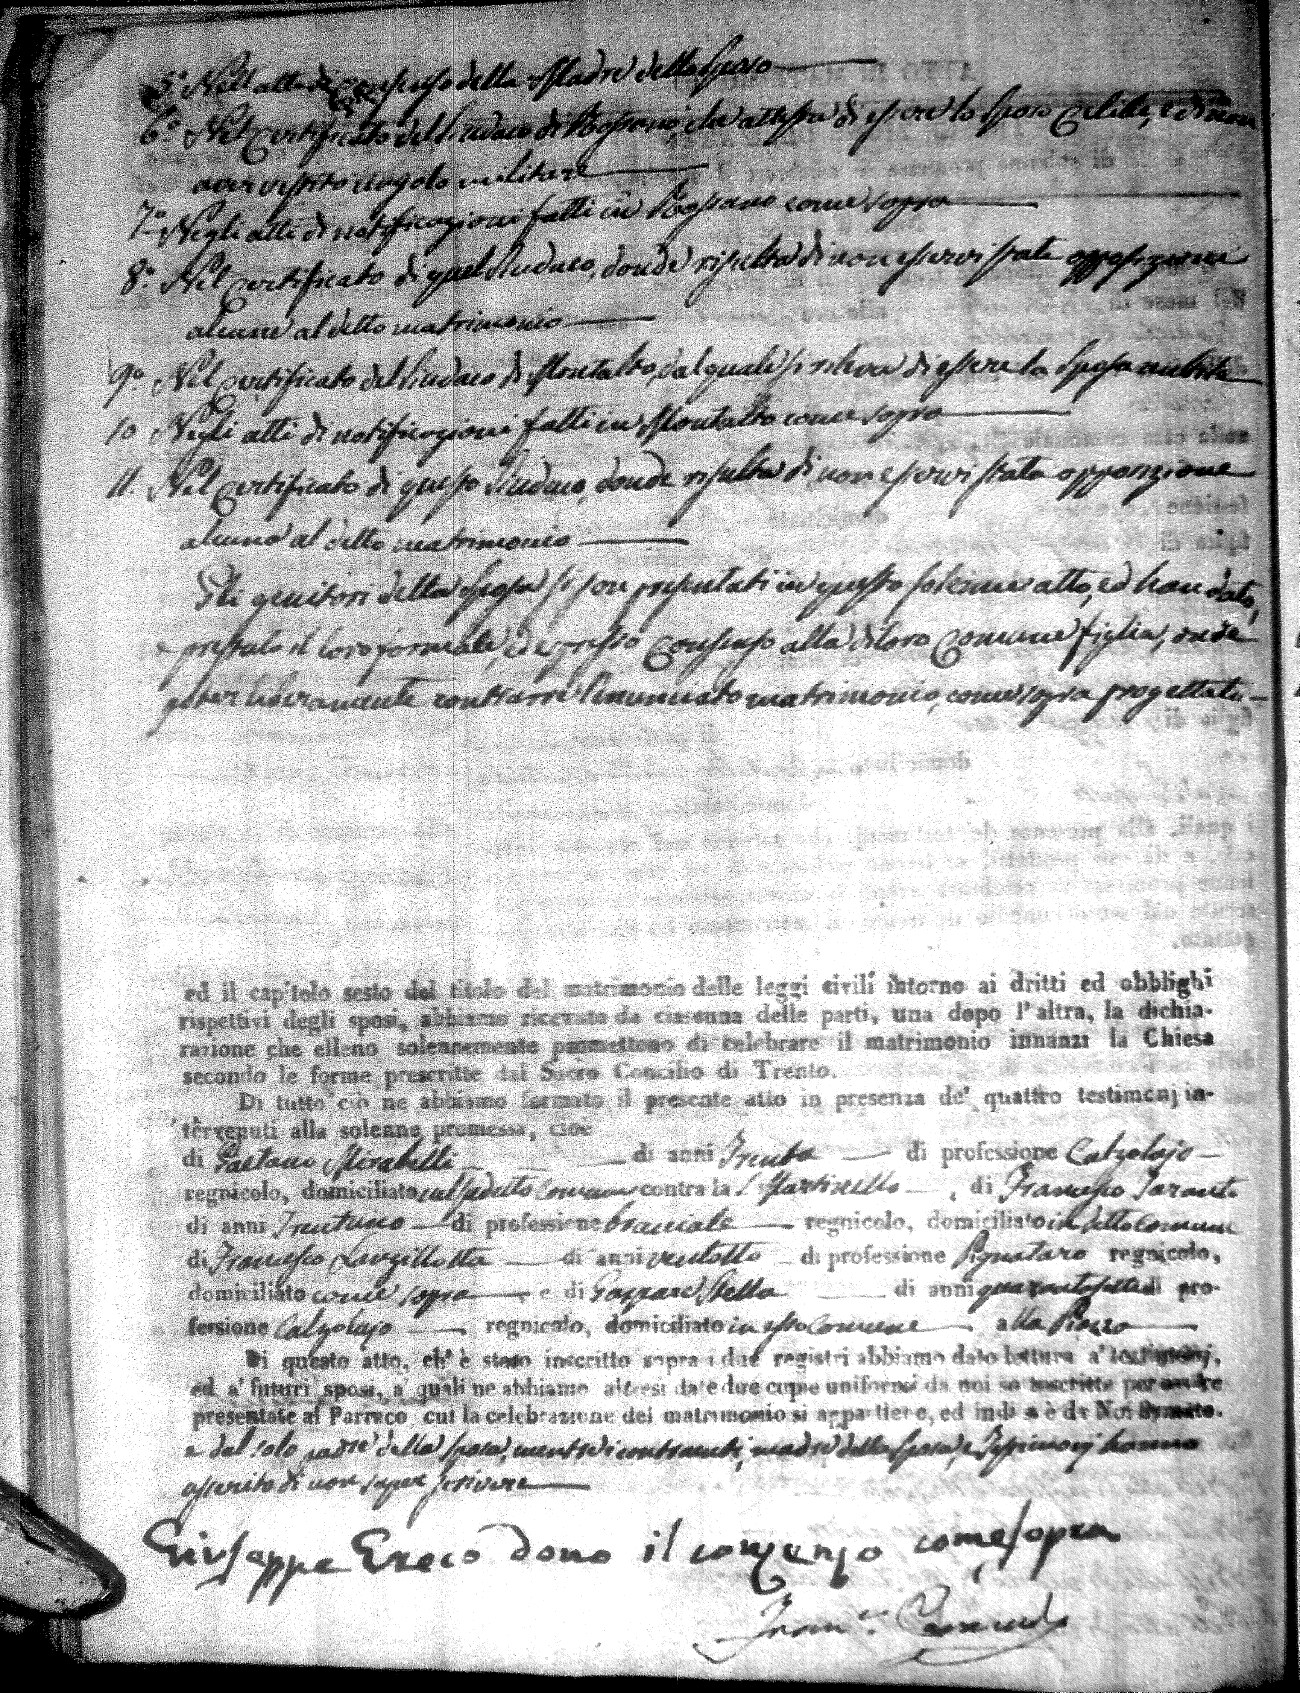 5.° Nell'atto di consenso della Madre dello Sposo
6.° Nel Certificato del Sindaco di Rossano, che attesta di essere lo sposo celibe, e di non
aver servito militare
7.° Negli atti di notificazioni fatti in Rossano come sopra
8.° Nel Certificato di quel Sindaco, donde risulta di non esservi stata opposizione
alcuna al detto matrimonio
9.° Nel Certificato del Sindaco di Montalto, dal quale si rileva di essere la Sposa nubile
10 Negli atti di notificazioni fatti in Montalto come sopra
11. Nel Certificato di questo Sindaco, donde risulta di non esservi stata opposizione
alcuna al detto matrimonio
Gli genitori della sposa si son presentati in questo solenne atto, ed han dato,
e prestato il loro formale, ed espresso consenso alla di loro comune figlia, onde
poter liberamente contrarre l'enunciato matrimonio, come sopra progettato
ed il capitolo sesto del titolo del matrimonio delle leggi civili intorno ai dritti ed obblighi
rispettivi degli sposi, abbiamo ricevuto da ciascuna delle parti, una dopo l'altra, la dichia-
razione che elleno solennemente promettono di celebrare il matrimonio innanzi la Chiesa
secondo le forme prescritte dal Sacro Concilio di Trento.
Di tutto ciò ne abbiamo formato il presente atto in presenza de' quattro testimonj in-
tervenuti alla solenne promessa, cioè
di Gaetano Mirabelli di anni Trenta di professione Calzolajo
regnicolo, domiciliato nel sudetto Comune contra la Martinella, di Francesco Taranto
di anni Trentuno di professione bracciale regnicolo, domiciliato in detto Comune
di Francesco Lanzillotta di anni ventotto di professione Pignataro regnicolo,
domiciliato come sopra e di Gaspare Stella di anni quarantasette di pro-
fessione Calzolajo regnicolo, domiciliato in esso Comune alla Piazza
Di questo atto, ch'è stato inscritto sopra i due registri abbiamo dato lettura a' testimonj,
ed a' futuri sposi, a' quali ne abbiamo altresì date due copie uniformi da noi sottoscritte per essere
presentate al Parroco cui la celebrazione del matrimonio si appartiene, ed indi si è da Noi firmato.
e dal solo padre della sposa, mentre i contraenti, madre della sposa, e Testimonj hanno
asserito di non saper scrivere
Giuseppe Greco dono il conzenzo come sopra
Fran.co